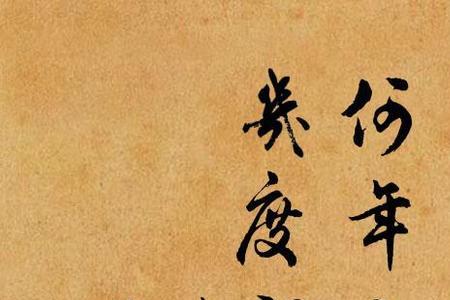 何年
幾度